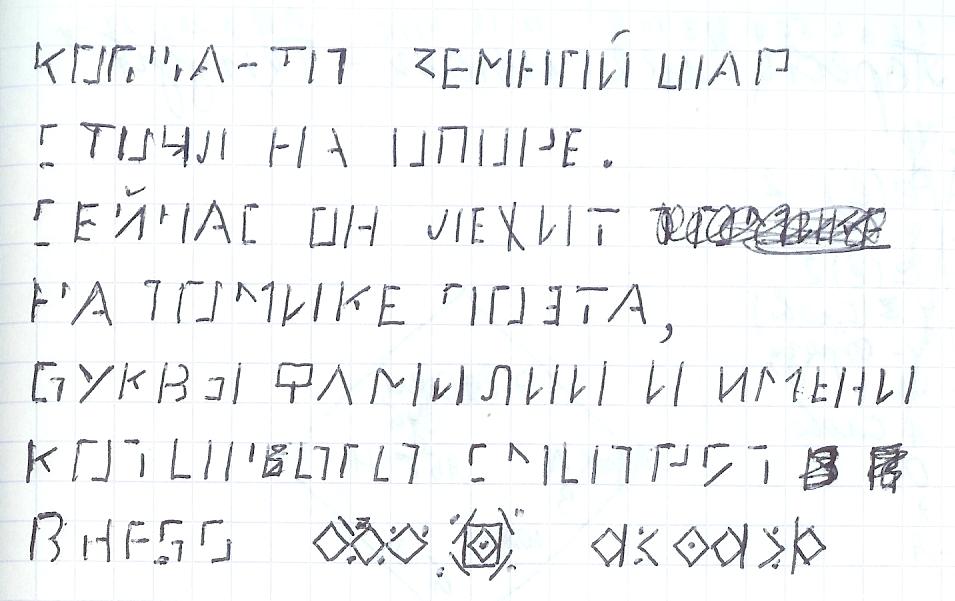 КОГДА-ТО ЗЕМНОЙ ШАР
СТОЯЛ НА ОПОРЕ.
СЕЙЧАС ОН ЛЕЖИТ
НА ТОМИКЕ ПОЭТА,
БУКВЫ ФАМИЛИИ И ИМЕНИ
КОТОРОГО СМОТРЯТ
В НЕБО